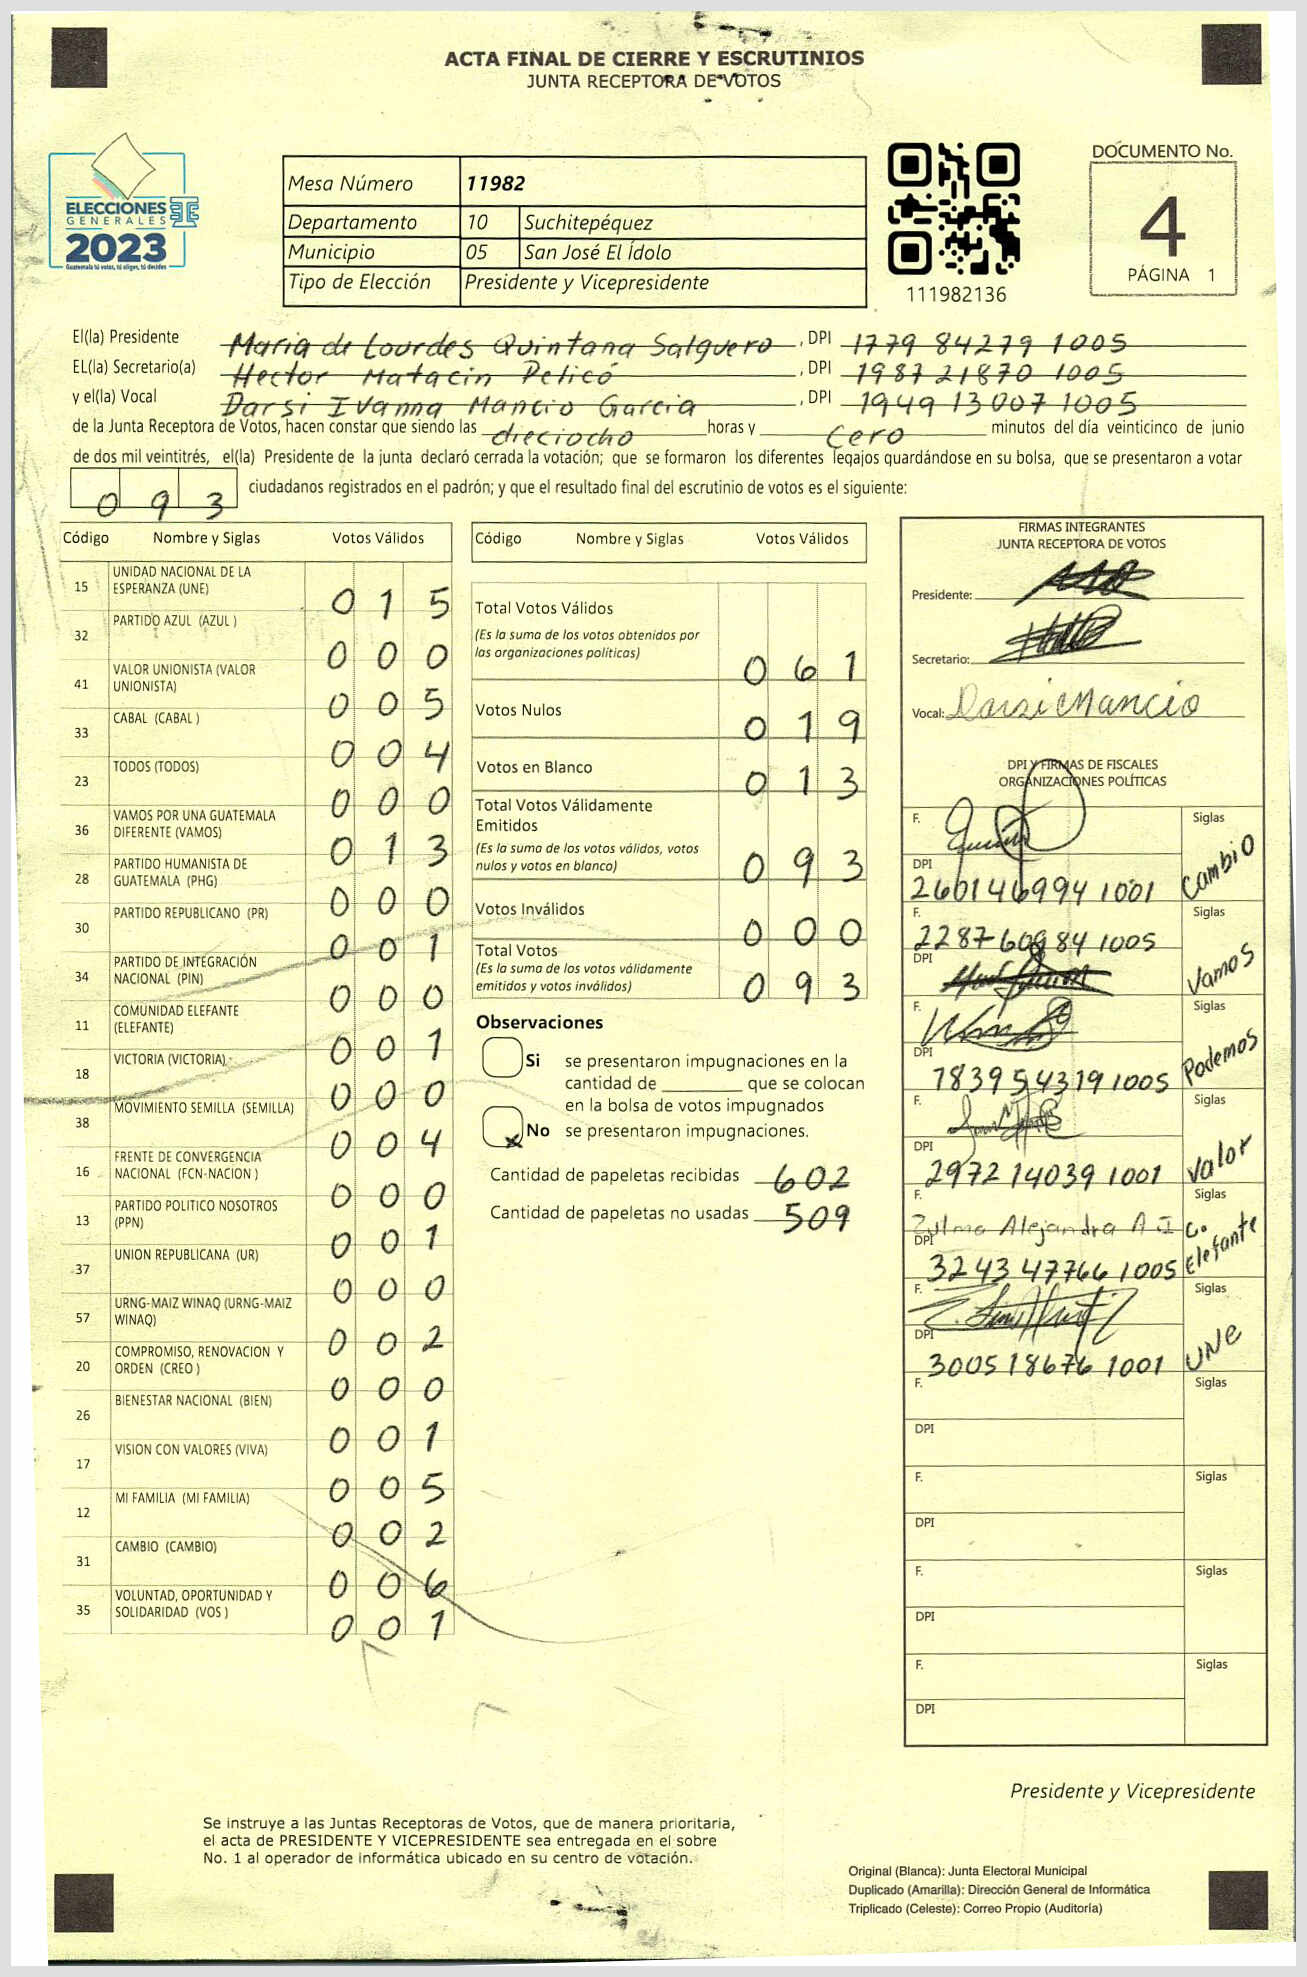 ACTA FINAL DE CIERRE Y ESCRUTINIOS
JUNTA RECEPTORA DE VOTOS
ELECCIONES
GENERALES
2023
Guatemala tú votas, tú eliges, tú decides
Mesa Número 11982
Departamento 10 Suchitepéquez
Municipio 05 San José El Ídolo
Tipo de Elección Presidente y Vicepresidente
111982136
DOCUMENTO No.
4
PÁGINA 1
El(la) Presidente Maria de Lourdes Quintana Salguero, DPI 1779 84279 1005
EL(la) Secretario(a) Hector Matacin Peticó, DPI 1987 21870 1005
y el(la) Vocal Darsi Ivanna Mancio Garcia, DPI 1949 13007 1005
de la Junta Receptora de Votos, hacen constar que siendo las dieciocho horas y Cero minutos del día veinticinco de junio
de dos mil veintitrés, el(la) Presidente de la junta declaró cerrada la votación; que se formaron los diferentes legajos guardándose en su bolsa, que se presentaron a votar
093 ciudadanos registrados en el padrón; y que el resultado final del escrutinio de votos es el siguiente:
Código Nombre y Siglas Votos Válidos
15 UNIDAD NACIONAL DE LA ESPERANZA (UNE) 015
32 PARTIDO AZUL (AZUL ) 000
41 VALOR UNIONISTA (VALOR UNIONISTA) 005
33 CABAL (CABAL ) 004
23 TODOS (TODOS) 000
36 VAMOS POR UNA GUATEMALA DIFERENTE (VAMOS) 013
28 PARTIDO HUMANISTA DE GUATEMALA (PHG) 000
30 PARTIDO REPUBLICANO (PR) 001
34 PARTIDO DE INTEGRACIÓN NACIONAL (PIN) 000
11 COMUNIDAD ELEFANTE (ELEFANTE) 001
18 VICTORIA (VICTORIA) 000
38 MOVIMIENTO SEMILLA (SEMILLA) 004
16 FRENTE DE CONVERGENCIA NACIONAL (FCN-NACION ) 000
13 PARTIDO POLITICO NOSOTROS (PPN) 001
37 UNION REPUBLICANA (UR) 000
57 URNG-MAIZ WINAQ (URNG-MAIZ WINAQ) 002
20 COMPROMISO, RENOVACION Y ORDEN (CREO ) 000
26 BIENESTAR NACIONAL (BIEN) 001
17 VISION CON VALORES (VIVA) 005
12 MI FAMILIA (MI FAMILIA) 002
31 CAMBIO (CAMBIO) 006
35 VOLUNTAD, OPORTUNIDAD Y SOLIDARIDAD (VOS ) 001
Código Nombre y Siglas Votos Válidos
Total Votos Válidos
(Es la suma de los votos obtenidos por
las organizaciones políticas) 061
Votos Nulos 019
Votos en Blanco 013
Total Votos Válidamente
Emitidos
(Es la suma de los votos válidos, votos
nulos y votos en blanco) 093
Votos Inválidos 000
Total Votos
(Es la suma de los votos válidamente
emitidos y votos inválidos) 093
Observaciones
Si se presentaron impugnaciones en la
cantidad de ________ que se colocan
en la bolsa de votos impugnados
x No se presentaron impugnaciones.
Cantidad de papeletas recibidas 602
Cantidad de papeletas no usadas 509
FIRMAS INTEGRANTES
JUNTA RECEPTORA DE VOTOS
Presidente:
Secretario:
Vocal: Darsi Mancio
DPI Y FIRMAS DE FISCALES
ORGANIZACIONES POLÍTICAS
F. Siglas
DPI 2601 46994 1001 Cambio
F. 2287 60984 1005 Siglas
DPI Vamos
F. Siglas
DPI 7839 54319 1005 Podemos
F. Siglas
DPI 2972 14039 1001 Valor
F. Zulma Alejandra A I Siglas
DPI 3243 47766 1005 C. Elefante
F. Siglas
DPI 3005 18676 1001 UNE
F. Siglas
DPI
F. Siglas
DPI
F. Siglas
DPI
F. Siglas
DPI
Presidente y Vicepresidente
Se instruye a las Juntas Receptoras de Votos, que de manera prioritaria,
el acta de PRESIDENTE Y VICEPRESIDENTE sea entregada en el sobre
No. 1 al operador de informática ubicado en su centro de votación.
Original (Blanca): Junta Electoral Municipal
Duplicado (Amarilla): Dirección General de Informática
Triplicado (Celeste): Correo Propio (Auditoría)